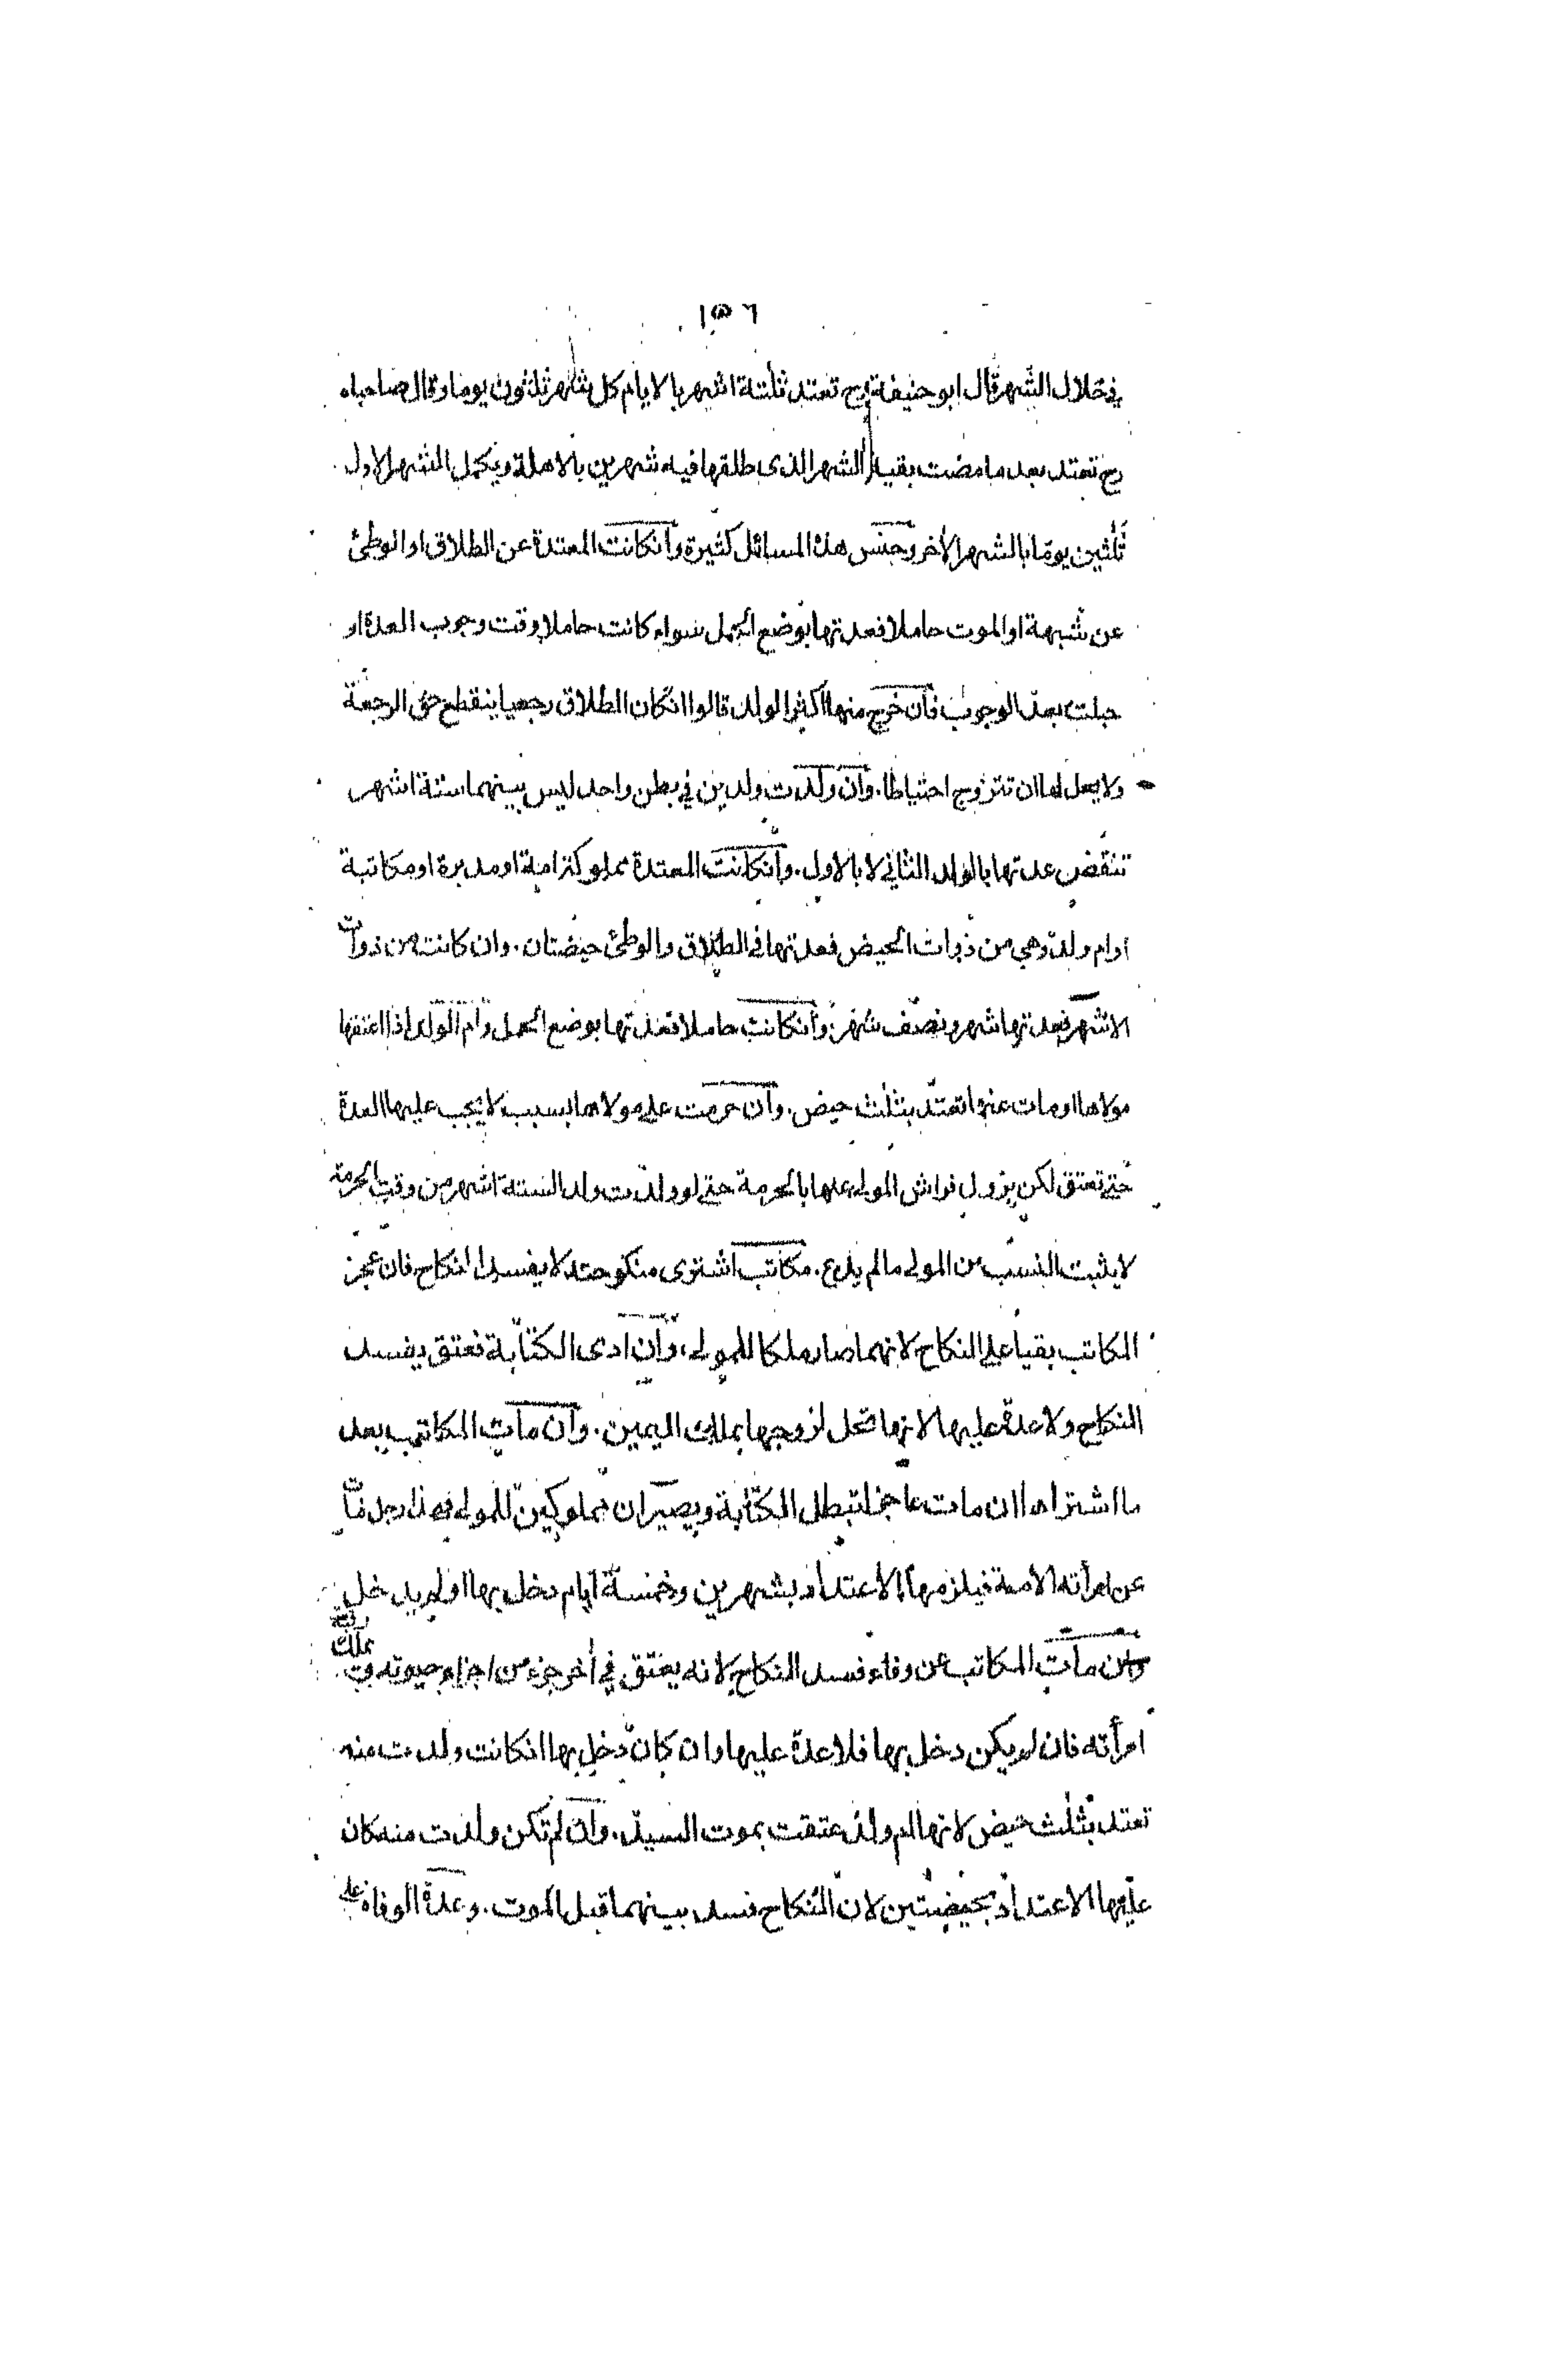 ١٥٦
في خلال الشهر قال ابو حنيفة رح تعتد ثلثة اشهر بالايام كل شهر ثلثون يوما وقال صاحباه
رح تعتد بعد ما مضت بقية الشهر الذى طلقها فيه شهرين بالاهلة ويكمل الشهر الاول
ثلثين يوما بالشهر الأخر وجنس هذه المسائل كثيرة وانكانت المعتدة عن الطلاق او الوطئ
عن شبهة او الموت حاملا فعدتها بوضع الحمل سواء كانت حاملا وقت وجوب العدة او
حبلت بعد الوجوب فان خرج منها اكثر الولد قالوا انكان الطلاق رجعيا ينقطع حق الرجعة
ولا يحل لها ان تتزوج احتياطا. وان ولدت ولدين في بطن واحد ليس بينهما ستة اشهر
تنقضى عدتها بالولد الثاني لا بالاول. وانكانت المعتدة مملوكة امة او مدبرة او مكاتبة
او ام ولد وهي من ذوات الحيض فعدتها في الطلاق والوطئ حيضتان. وان كانت من ذوات
الاشهر فعدتها شهر ونصف شهر. وانكانت حاملا فعدتها بوضع الحمل وام الولد اذا اعتقها
مولاها او مات عنها تعتد بثلث حيض. وان حرمت على مولاها بسبب لا يجب عليها العدة
حتى تعتق لكن يزول فراش المولى عنها بالحرمة حتى لو ولدت ولدا لستة اشهر من وقت الحرمة
لا يثبت النسب من المولى ما لم يدع. مكاتب اشترى منكوحته لا يفسد النكاح فان عجز
المكاتب بقيا على النكاح لانهما صار ملكا للمولى، وان ادى الكتابة فعتق يفسد
النكاح ولا عدة عليها لانها تحل لزوجها بملك اليمين. وان مات المكاتب بعد
ما اشتراها ان مات عاجزا تبطل الكتابة ويصيران مملوكين للمولى فهذا رجل مات
عن امرأته الامة فيلزمها الاعتداد بشهرين وخمسة ايام دخل بها او لم يدخل
وان مات المكاتب عن وفاء فسد النكاح لانه يعتق في أخر جزء من اجزاء حيوته وتملك رقبة
امرأته فان لم يكن دخل بها فلا عدة عليها وان كان دخل بها انكانت ولدت منه
تعتد بثلث حيض لانها ام ولد عتقت بموت السيد. وان لم تكن ولدت منه كان
عليها الاعتداد بحيضتين لان النكاح فسد بينهما قبل الموت. وعدة الوفاة على